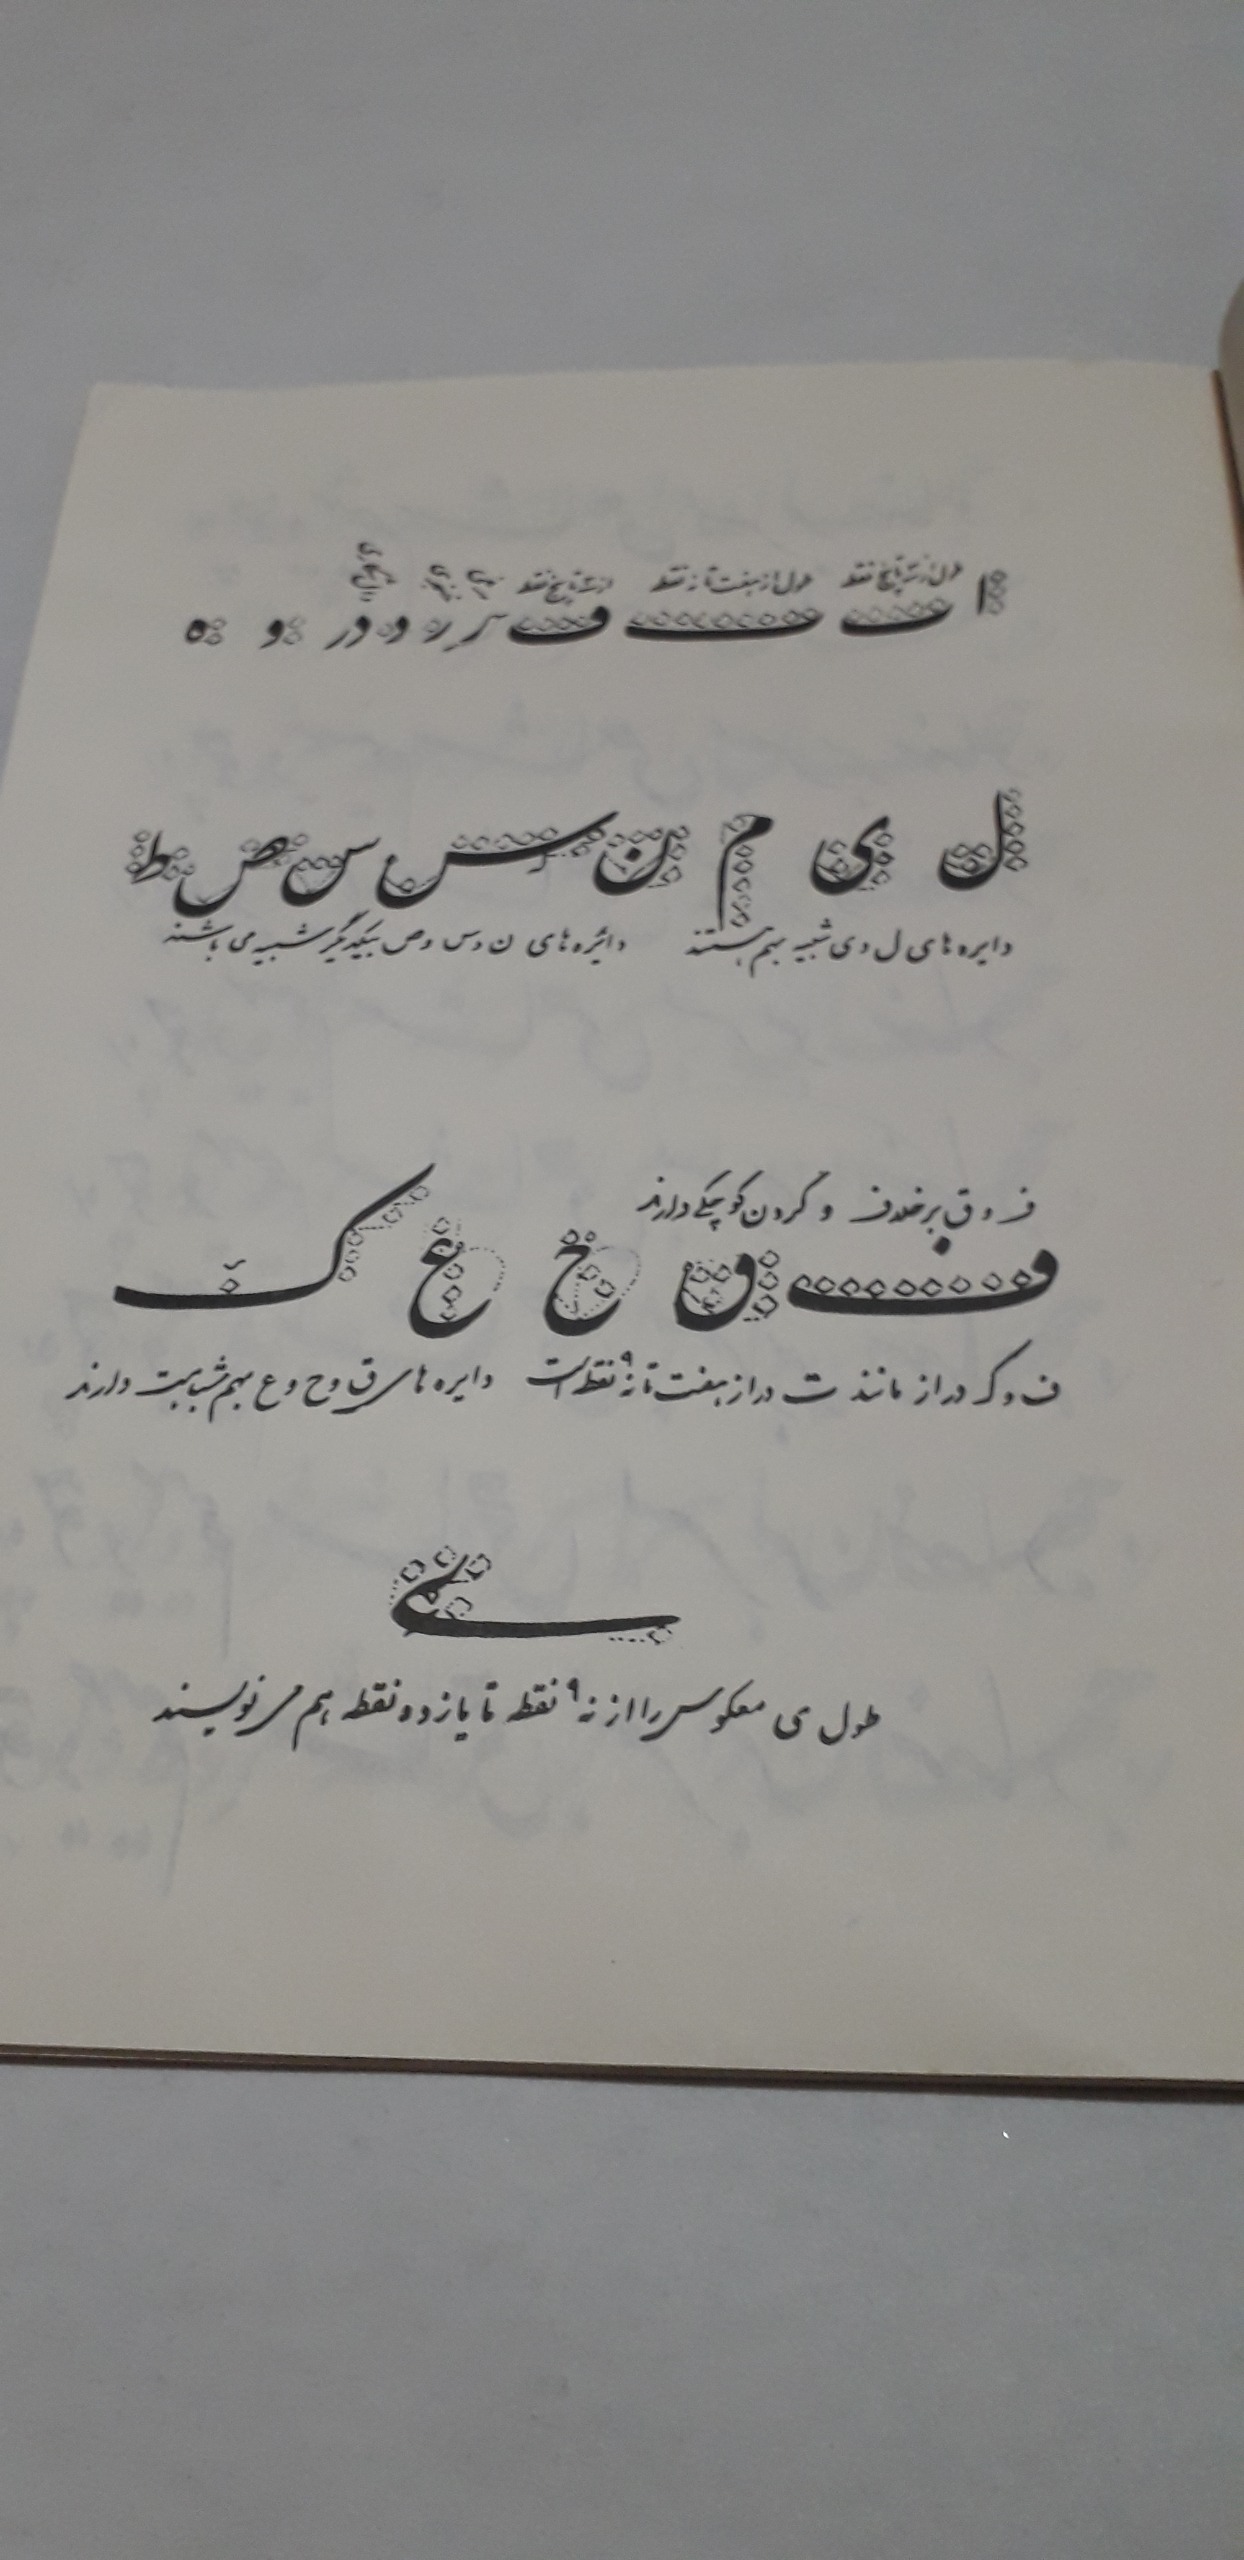 طول از سه تا پنج نقطه طول از هفت تا نه نقطه از سه تا پنج نقطه
ا ت ت ف ر ر و در و ه
ل ی م ن س س ص ط
دایره های ل و ی شبیه بهم هستند دائره های ن و س و ص بیکدیگر شبیه می باشند
ف و ق بر خلاف و گردن کوچکی دارند
ف ق ح ع ک
ف و ک دراز مانند ت دراز هفت تا نه ۹ نقطه است دایره های ق و ح و ع بهم شباهت دارند
ی
طول ی معکوس را از نه ۹ نقطه تا یازده نقطه هم می نویسند